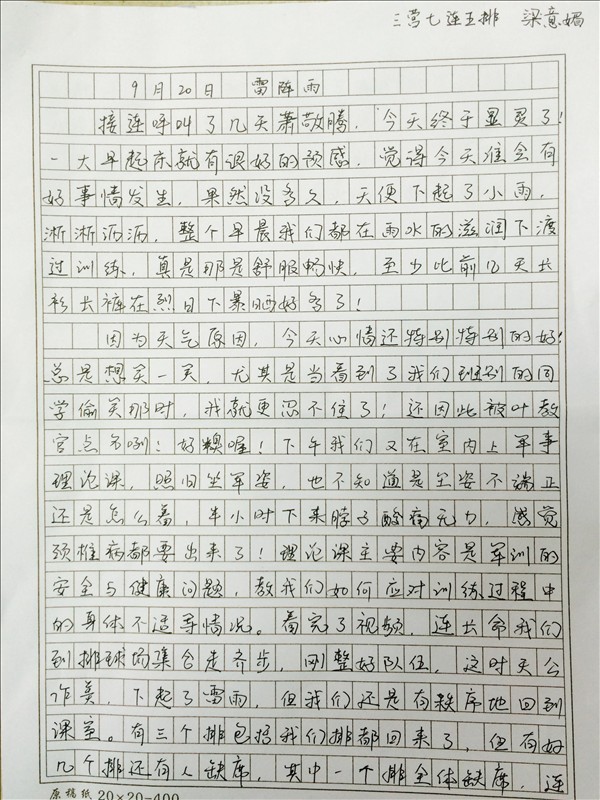 三营七连五排 梁意媚
9月20日 雷阵雨
接连呼叫了几天萧敬腾，今天终于显灵了！
一大早起床就有很好的预感，觉得今天准会有
好事情发生，果然没多久，天便下起了小雨，
淅淅沥沥，整个早晨我们都在雨水的滋润下渡
过训练，真是那是舒服畅快，至少比前几天长
衫长裤在烈日下暴晒好多了！
因为天气原因，今天心情还特别特别的好！
总是想笑一笑，尤其是当看到了我们班别的同
学偷笑那时，我就更忍不住了！还因此被叶教
官点名咧！好糗喔！下午我们又在室内上军事
理论课，照旧坐军姿，也不知道是坐姿不端正
还是怎么着，半小时下来脖子酸痛无力，感觉
颈椎病都要出来了！理论课主要内容是军训的
安全与健康问题，教我们如何应对训练过程中
的身体不适等情况。看完了视频，连长命我们
到排球场集合走齐步，刚整好队伍，这时天公
作美，下起了雷雨，但我们还是有秩序地回到
课室。有三个排包括我们排都回来了，但有好
几个排还有人缺席，其中一个排全体缺席，连
原稿纸 20×20=400